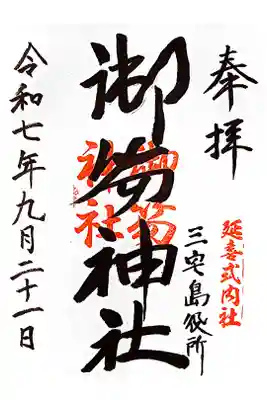 奉拝
延喜式内社
三宅島役所
御笏神社
御笏神社
令和七年九月二十一日